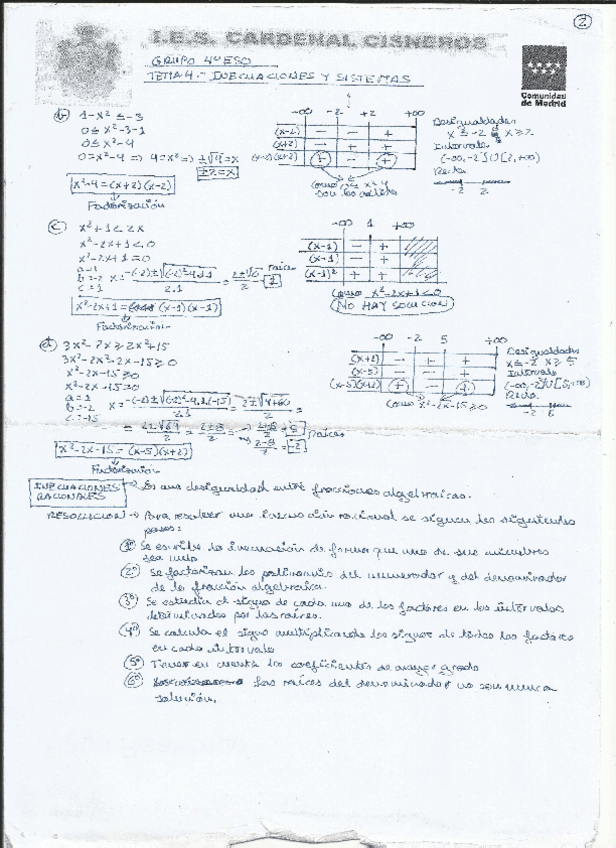 2
I.E.S. CARDENAL CISNEROS
GRUPO 4º ESO
TEMA 4.- INECUACIONES Y SISTEMAS
Comunidad
de Madrid
b) 1-x² ≤ -3
0 ≤ x²-3-1
0 ≤ x²-4
0 = x²-4 ⇒ 4 = x² ⇒ ±√4 = x
±2 = x
x²-4 = (x+2)(x-2)
Factorización
-∞ -2 +2 +∞
(x-2) - - +
(x+2) - + +
(x-2)(x+2) + - +
Desigualdades
x ≤ -2 x ≥ 2
Intervalo
(-∞,-2]∪[2,+∞)
Recta
-2 2
c) x²+1 < 2x
x²-2x+1 < 0
x²-2x+1 = 0
a=1
b=-2
c=1
x = -(-2)±√(-2)²-4.1.1 / 2.1 = 2±√0 / 2 = 1
Raíces
x²-2x+1 = (x-1)(x-1)
Factorización
-∞ 1 +∞
(x-1) - +
(x-1) - +
(x-1)² + +
Como x²-2x+1 < 0
NO HAY SOLUCION
d) 3x²-2x ≥ 2x²+15
3x²-2x²-2x-15 ≥ 0
x²-2x-15 ≥ 0
x²-2x-15 = 0
a=1
b=-2
c=-15
x = -(-2)±√(-2)²-4.1.(-15) / 2.1 = 2±√4+60 / 2 =
= 2±√64 / 2 = 2±8 / 2 = 2+8 / 2 = 5
2-8 / 2 = -2
Raíces
x²-2x-15 = (x-5)(x+2)
Factorización
-∞ -2 5 +∞
(x+2) - + +
(x-5) - - +
(x-5)(x+2) + - +
Como x²-2x-15 ≥ 0
Desigualdades
x ≤ -2 x ≥ 5
Intervalo
(-∞,-2]∪[5,+∞)
Recta
-2 5
INECUACIONES RACIONALES → Es una desigualdad entre fracciones algebraicas.
RESOLUCION → Para resolver una inecuación racional se siguen los siguientes
pasos:
1º Se escribe la inecuación de forma que uno de sus miembros
sea nulo
2º Se factorizan los polinomios del numerador y del denominador
de la fracción algebraica.
3º Se estudia el signo de cada uno de los factores en los intervalos
determinados por las raíces.
4º Se calcula el signo multiplicando los signos de todos los factores
en cada intervalo
5º Tener en cuenta los coeficientes de mayor grado
6º Las raíces del denominador no son nunca
solución.